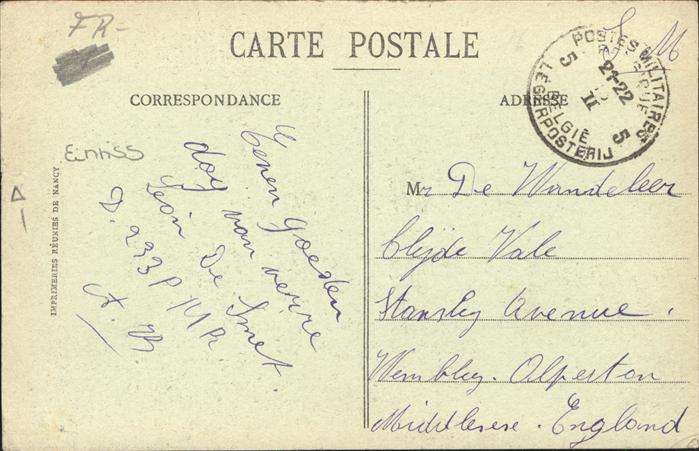 FR-
CARTE POSTALE
CORRESPONDANCE
ADRESSE
S M
POSTES MILITAIRES
BELGIQUE
21-22
5 II 5
BELGIË
LEGERPOSTERIJ
Eenen goeden
dag van verre
Leon De Smet.
D. 233 P
A. B
Mr De Wandeleer
Clyde Vale
Stansley Avenue,
Wembley. Alperton
Middlesese. England
IMPRIMERIES RÉUNIES DE NANCY